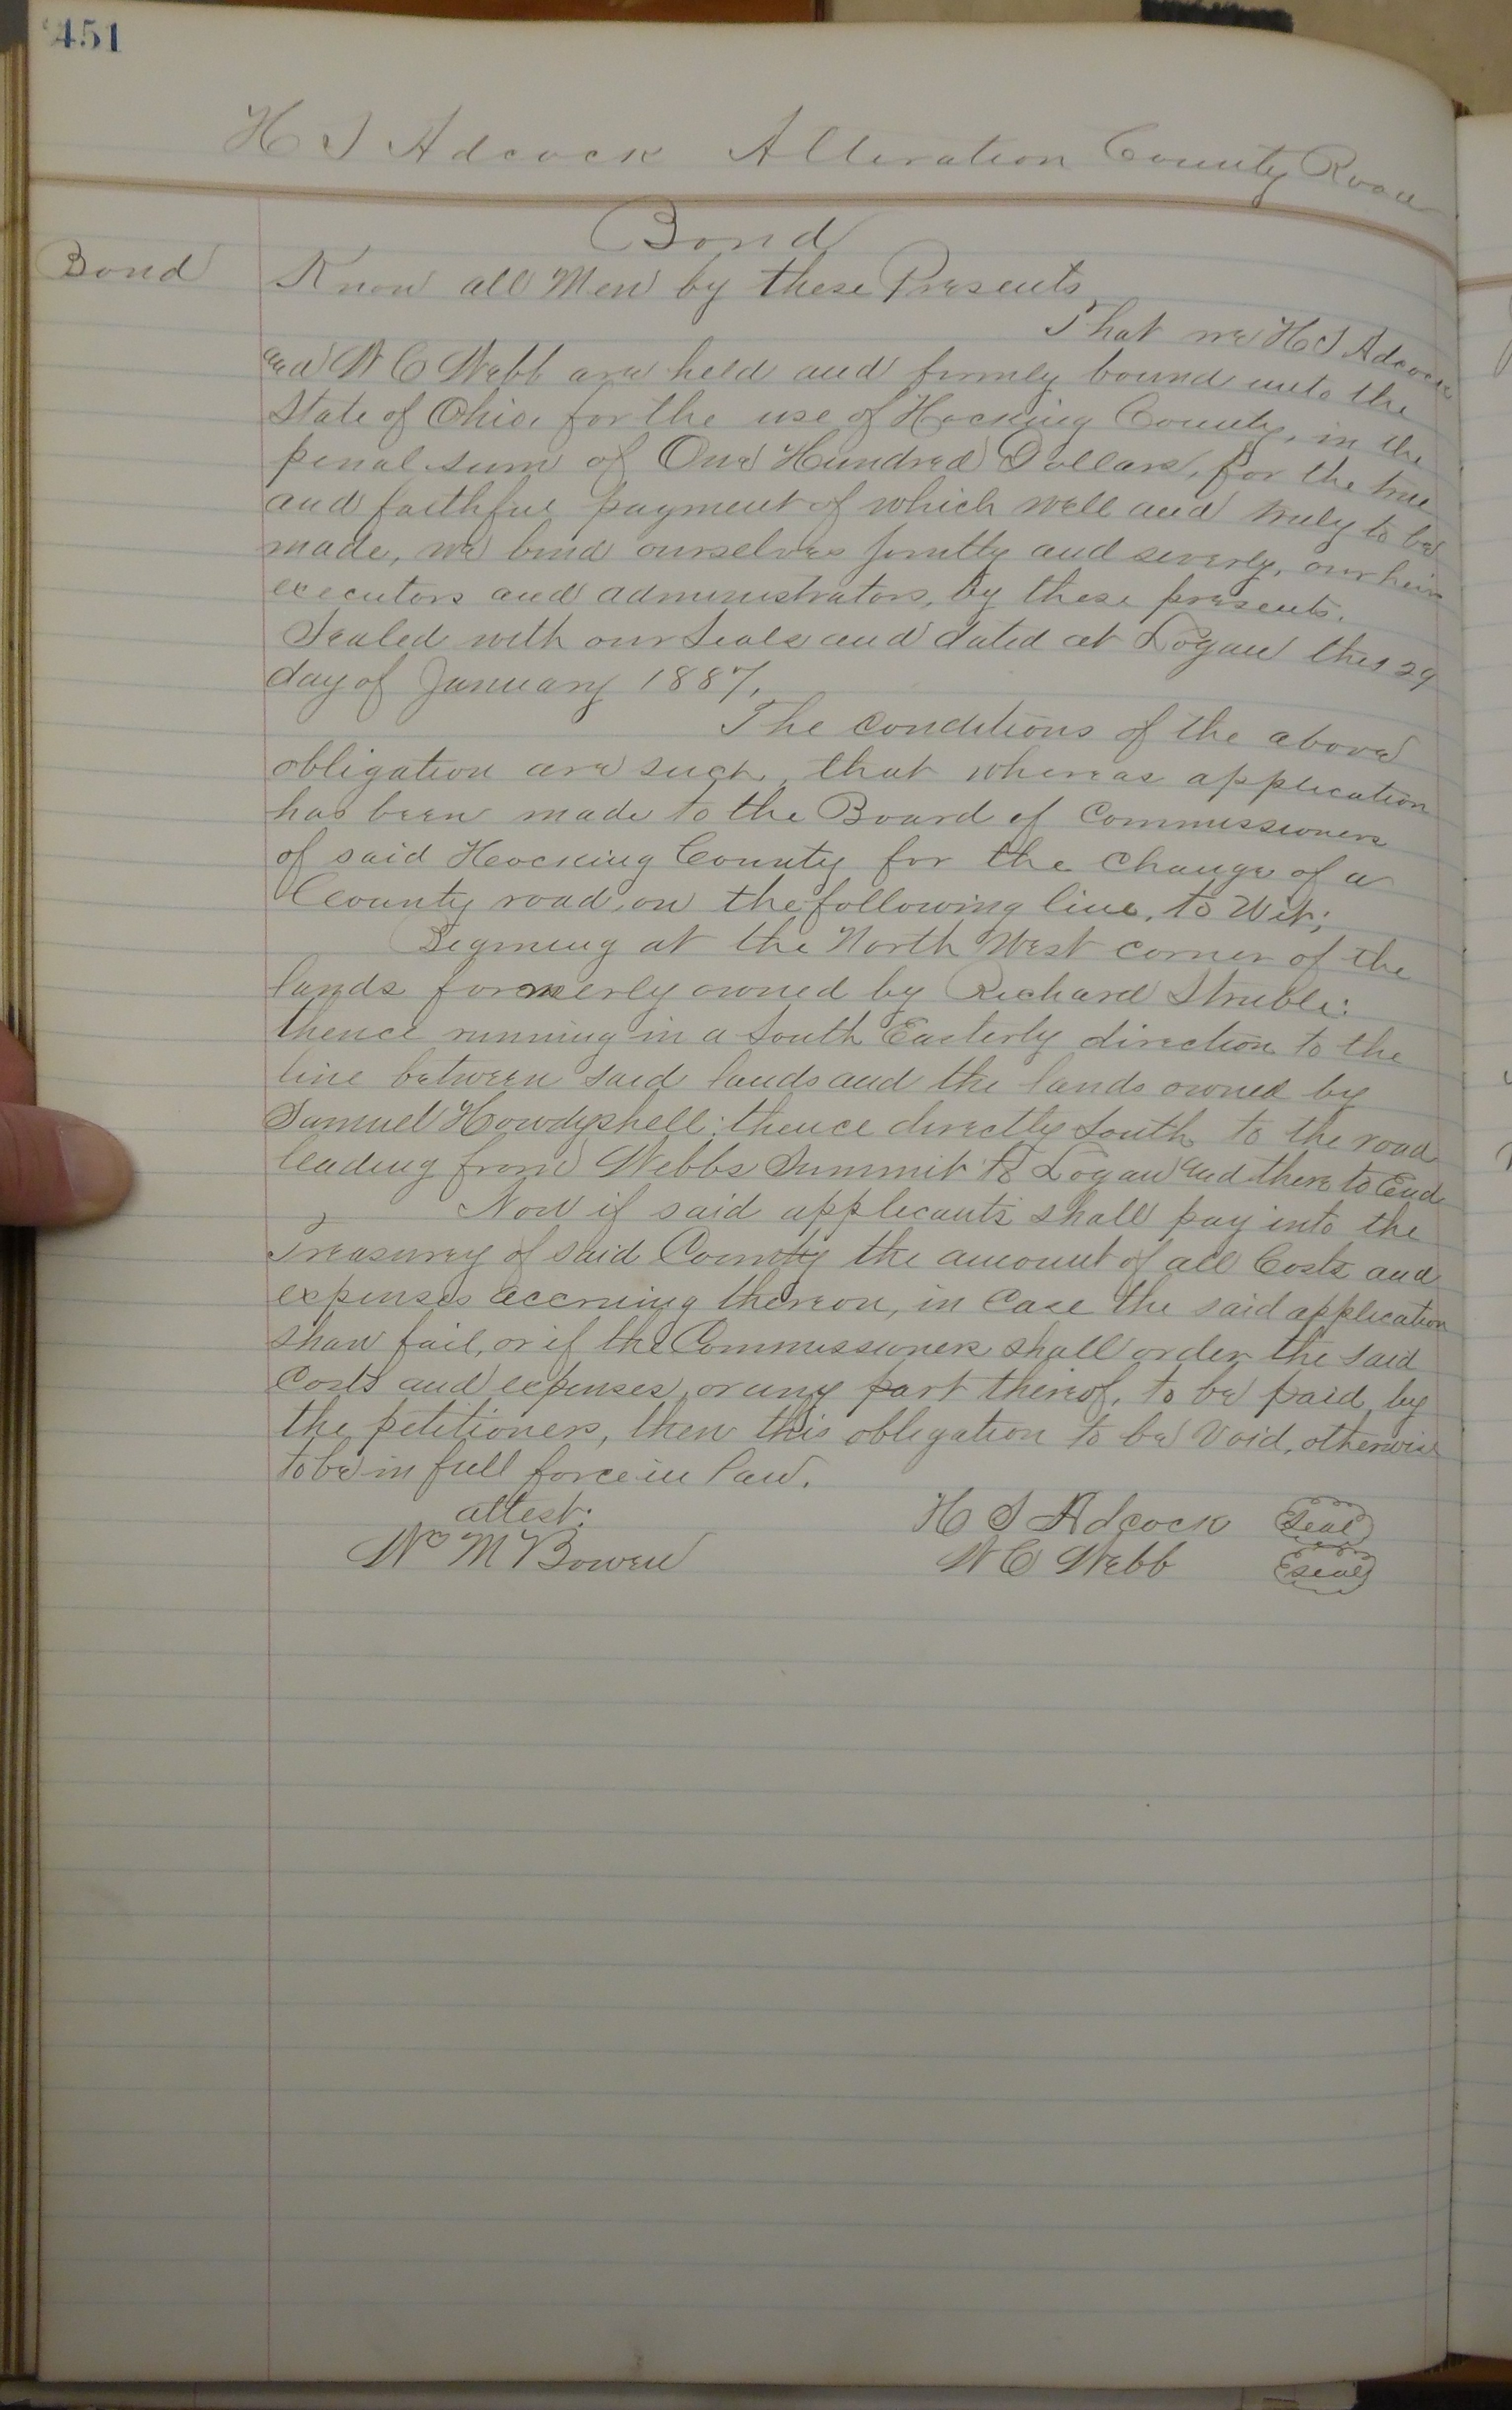 451
H S Adcock Alteration County Road
Bond
Bond
Know all Men by these Presents
That we H S Adcock
and W C Webb are held and firmly bound unto the
State of Ohio, for the use of Hocking County, in the
penal sum of One Hundred Dollars, for the true
and faithful payment of which well and truly to be
made, we bind ourselves jointly and severly, our heirs
executors and administrators, by these presents.
Sealed with our Seals and dated at Logan this 29
day of January 1887,
The Conditions of the above
obligation are such, that whereas application
has been made to the Board of Commissioners
of said Hocking County for the Change of a
County road, on the following line, to Wit;
Begining at the North West corner of the
lands formerly owned by Richard Struble:
thence running in a South Easterly direction to the
line between said lands and the lands owned by
Samuel Howdyshell: thence directly South to the road
leading from Webbs Summit to Logan and there to End
Now if said applicants shall pay into the
Treasurey of said County the amount of all Costs and
expenses accruing thereon, in Case the said application
shall fail, or if the Commissioners shall order the said
Costs and expenses, or any part thereof, to be paid by
the petitioners, then this obligation to be Void, otherwise
to be in full force in law.
attest:
H S Adcock Seal
Wm M Bowen
W C Webb Seal